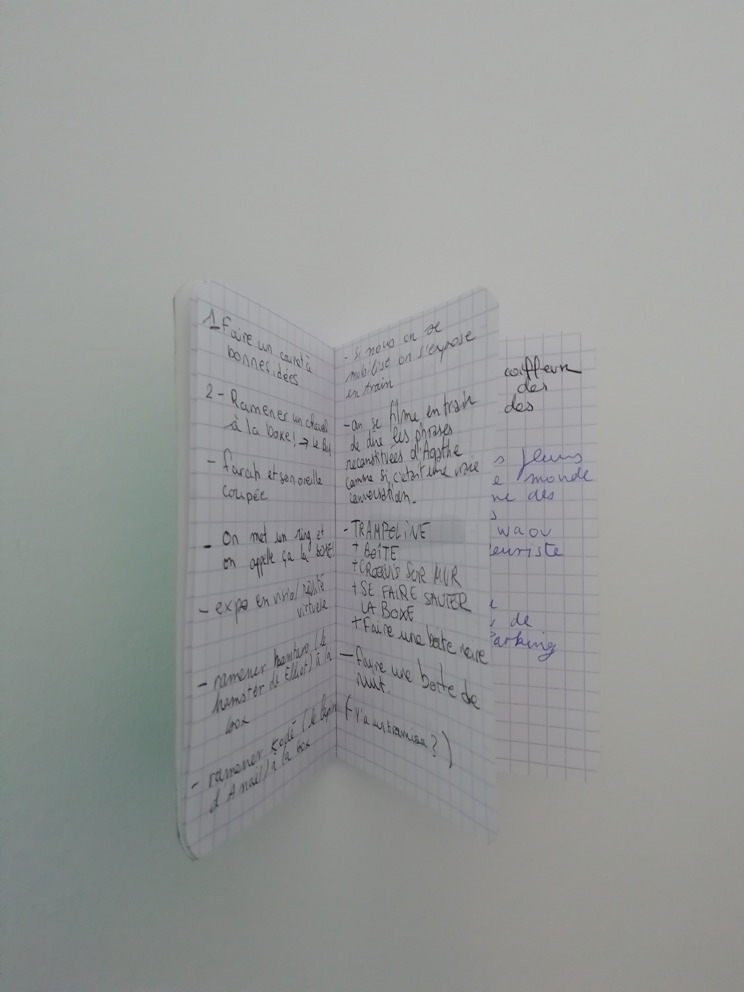 1 Faire un carnet à
bonnes idées
2 - Ramener un cheval
à la boxe! → le Bus
- farah et son oreille
coupée
- On met un ring et
on appelle ça la boxe
- expo en visio/réalité
virtuelle
- ramener (le
hamster de Elliot) à la
box
- ramener (le lapin
d'Anaël) à la box
- si nous on se
mobilise on s'expose
en train
- on se filme en train
de dire les phrases
reconstituées d'Agathe
comme si c'était une vraie
conversation.
- TRAMPOLINE
+ BOÎTE
+ CROQUIS SUR MUR
+ SE FAIRE SAUTER
LA BOXE
+ Faire une boite noire
- faire une boite de
nuit.
(y'a un ?)
coiffeur
des
des
s fleurs
e monde
ne des
s
waou
euriste
e
de
arking